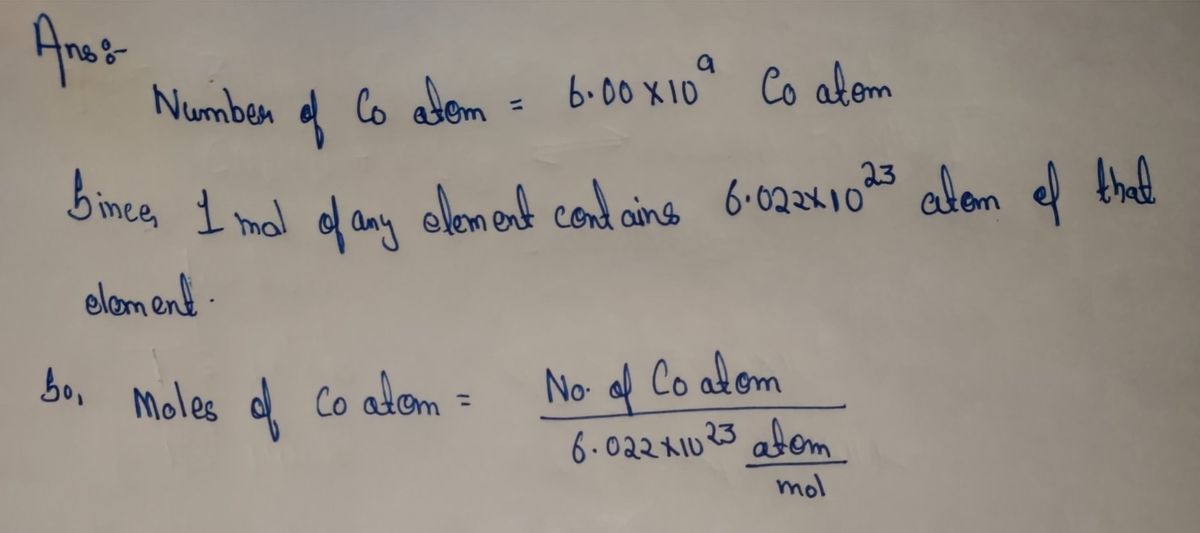 Ans:-
Number of Co atom = 6.00 x 10⁹ Co atom
Since, 1 mol of any element contains 6.022x10²³ atom of that
element.
So, Moles of Co atom = No. of Co atom
6.022x10²³ atom
mol